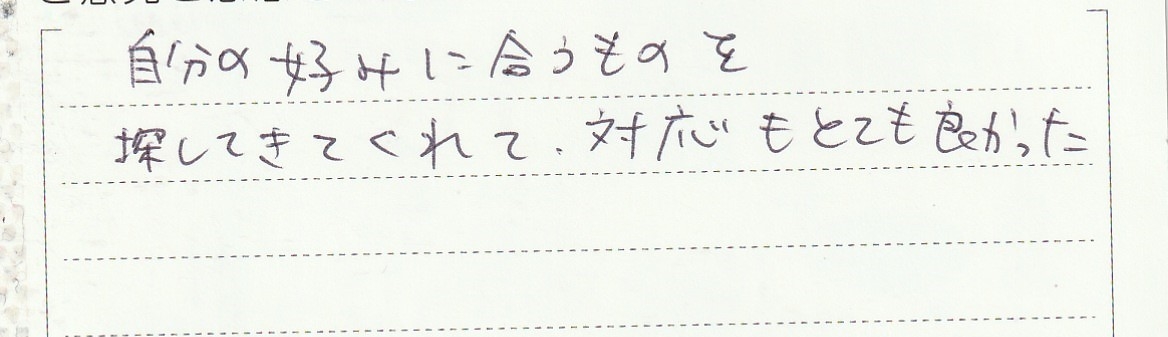 自分の好みに合うものを
探してきてくれて、対応もとても良かった